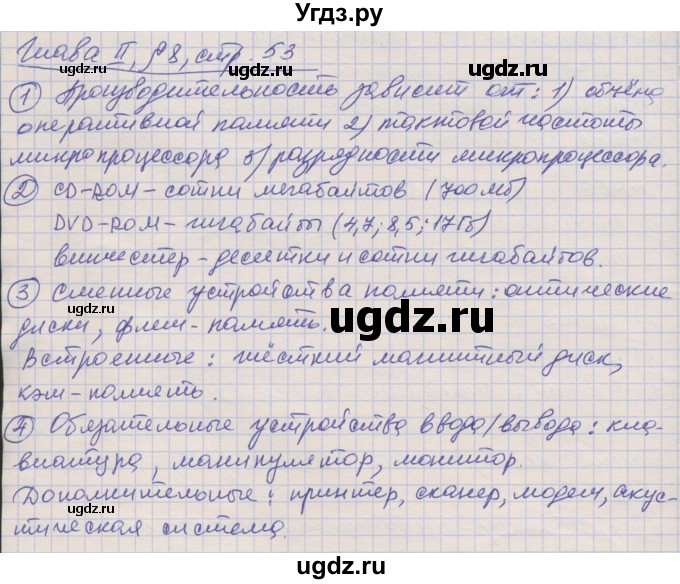 Угдз.ру
Глава II, §8, стр. 53
① Производительность зависит от: 1) объёма
оперативной памяти 2) тактовой частоты
микропроцессора 3) разрядности микропроцессора.
② CD-ROM - сотни мегабайтов (700Мб)
DVD-ROM - гигабайты (4,7; 8,5; 17Гб)
винчестер - десятки и сотни гигабайтов.
③ Сменные устройства памяти: оптические
диски, флеш-память.
Встроенные: жёсткий магнитный диск,
кэш-память.
④ Обязательные устройства ввода/вывода: кла-
виатура, манипулятор, монитор.
Дополнительные: принтер, сканер, модем, акус-
тическая система.
ugdz.ru
ugdz.ru
ugdz.ru
ugdz.ru
ugdz.ru
ugdz.ru
ugdz.ru
ugdz.ru
ugdz.ru
ugdz.ru
ugdz.ru